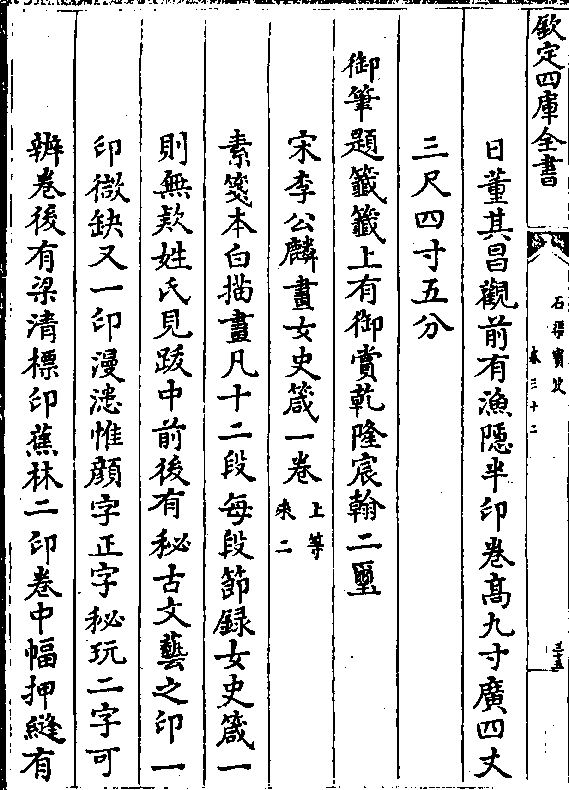 欽定四庫全書
石渠寶笈
卷三十二
三十五
日董其昌觀前有漁隱半印卷高九寸廣四丈
三尺四寸五分
御筆題籤籤上有御賞乾隆宸翰二璽
宋李公麟畫女史箴一卷
上等
來二
素箋本白描畫凡十二段每段節録女史箴一
則無欵姓氏見跋中前後有秘古文藝之印一
印微缺又一印漫漶惟顔字正字秘玩二字可
辨卷後有梁清標印蕉林二印卷中幅押縫有